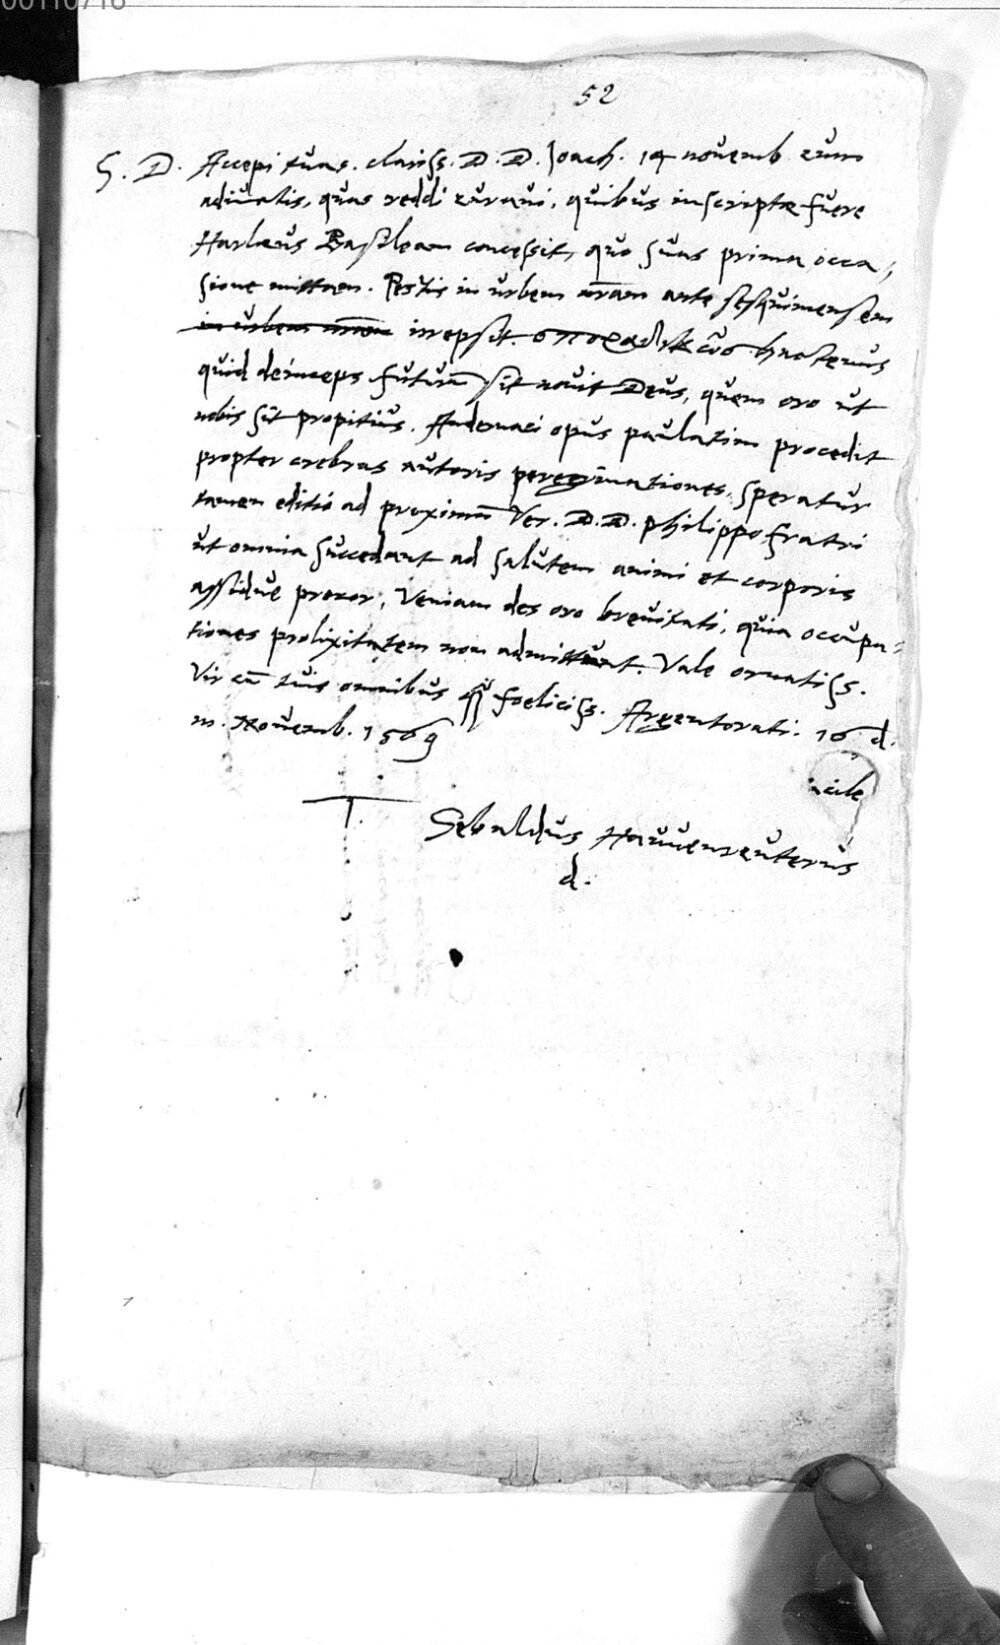 00110716
52
S. D. Accepi tuas. clariss. D. D. Joach. 14 novemb cum
adiunctis, quas reddi curavi, quibus inscriptæ fuere
Harlæus Basileam concessit, quo suas prima occa,,
sione mittam. Pestis in urbem nr̃am ante sesquimensem
in urbem nrãm irrepsit. σποραδικῶς hactenus
quid deinceps futurū sit novit Deus, quem oro ut
nobis sit propitius. Andernaci opus paulatim procedit
propter crebras autoris peregrinationes, speratur
tamen editio ad proximū Ver. D. D. philippo fratri
ut omnia succedant ad salutem animi et corporis
assidue precor, Veniam des oro brevitati, quia occupa-
tiones prolixitatem non admittunt. Vale ornatiss.
Vir cū tuis omnibus q̃ foeliciss. Argentorati. 16 d.
m. Novemb. 1569
T.
Sebaldus Hawenreuterus
d.